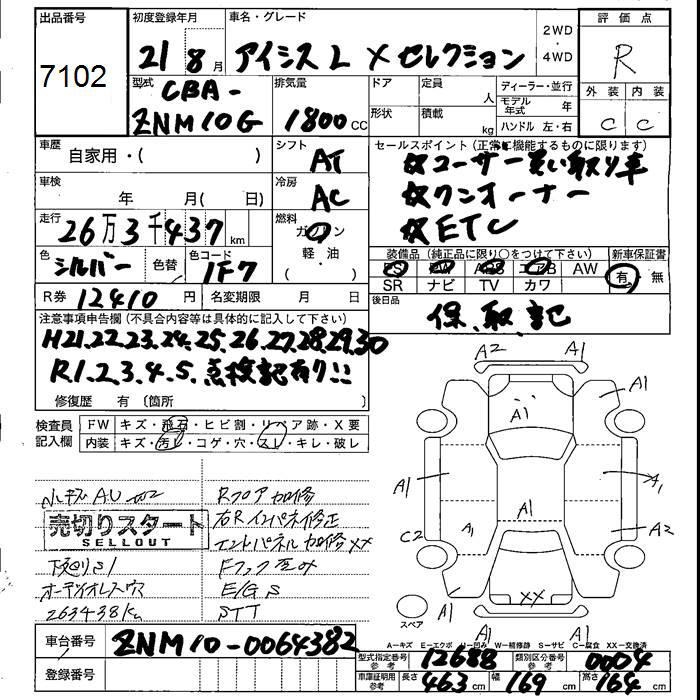 出品番号
7102
初度登録年月
21 8月
車名・グレード
アイシスL Xセレクション
2WD
・
4WD
評価点
R
型式
CBA-
ZNM10G
排気量
1800cc
ドア
定員
人
ディーラー・並行
モデル年式 年
形状
積載
kg
ハンドル 左・右
外装 内装
C C
車歴
自家用・( )
シフト
AT
セールスポイント(正常に機能するものに限ります)
女ユーザー買い取り車
女ワンオーナー
女ETC
車検
年 月( 日)
冷房
AC
走行
26万3千437km
燃料
ガソリン
軽・油
色
シルバー
色替
色コード
1F7
装備品(純正品に限り○をつけて下さい)
PS PW ABS エアB AW
SR ナビ TV カワ
新車保証書
有 無
R券 12410円
名変期限 月 日
後日品
保、取、記
注意事項申告欄(不具合内容等は具体的に記入して下さい)
H21.22.23.24.25.26.27.28.29.30
R1.2.3.4.5.点検記有り!!
修復歴 有(箇所 )
検査員
記入欄
FW キズ・飛石・ヒビ割・リペア跡・X要
内装 キズ・汚レ・コゲ・穴・スレ・キレ・破レ
Rフロア加修
売切りスタート
SELLOUT
右Rインパネ修正
エンドパネル加修XX
下廻りS1
Fフック歪み
E/G S
263438km
STT
A2 A1
A1
A1
A1
A1
A1
C2
A1
A1
A2
A1
XX
A1
スペア
A=キズ E=エクボ U=凹み W=補修跡 S=サビ C=腐食 XX=交換済
車台番号
ZNM10-0064382
登録番号
型式指定番号
参考
12688
類別区分番号
参考
0004
車庫証明用
参考
長さ 463cm
幅 169cm
高さ 164cm